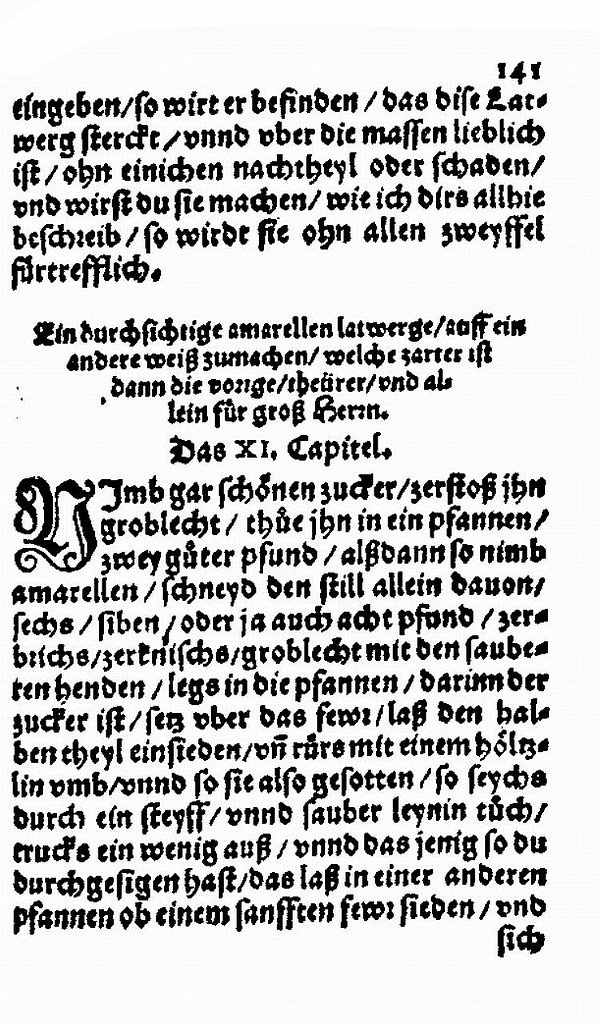 141
eingeben/so wirt er befinden/das dise Lat-
werg sterckt/vnnd vber die massen lieblich
ist/ohn einichen nachtheyl oder schaden/
vnd wirst du sie machen/wie ich dirs allhie
beschreib/so wirdt sie ohn allen zweyffel
fürtrefflich.
Ein durchsichtige amarellen latwerge/auff ein
andere weiß zumachen/welche zarter ist
dann die vorige/theürer/vnd al-
lein für groß Herrn.
Das XI. Capitel.
NJmb gar schönen zucker/zerstoß jhn
groblecht/thůe jhn in ein pfannen/
zwey gůter pfund/alßdann so nimb
amarellen/schneyd den still allein dauon/
sechs/siben/oder ja auch acht pfund/zer-
brichs/zerknischs/groblecht mit den saube-
ren henden/legs in die pfannen/darinn der
zucker ist/setz vber das fewr/laß den hal-
ben theyl einsieden/vn̄ růrs mit einem höltz-
lin vmb/vnnd so sie also gesotten/so seychs
durch ein steyff/vnnd sauber leynin tůch/
trucks ein wenig auß/vnnd das jenig so du
durchgesigen hast/das laß in einer anderen
pfannen ob einem sanfften fewr sieden/vnd
sich